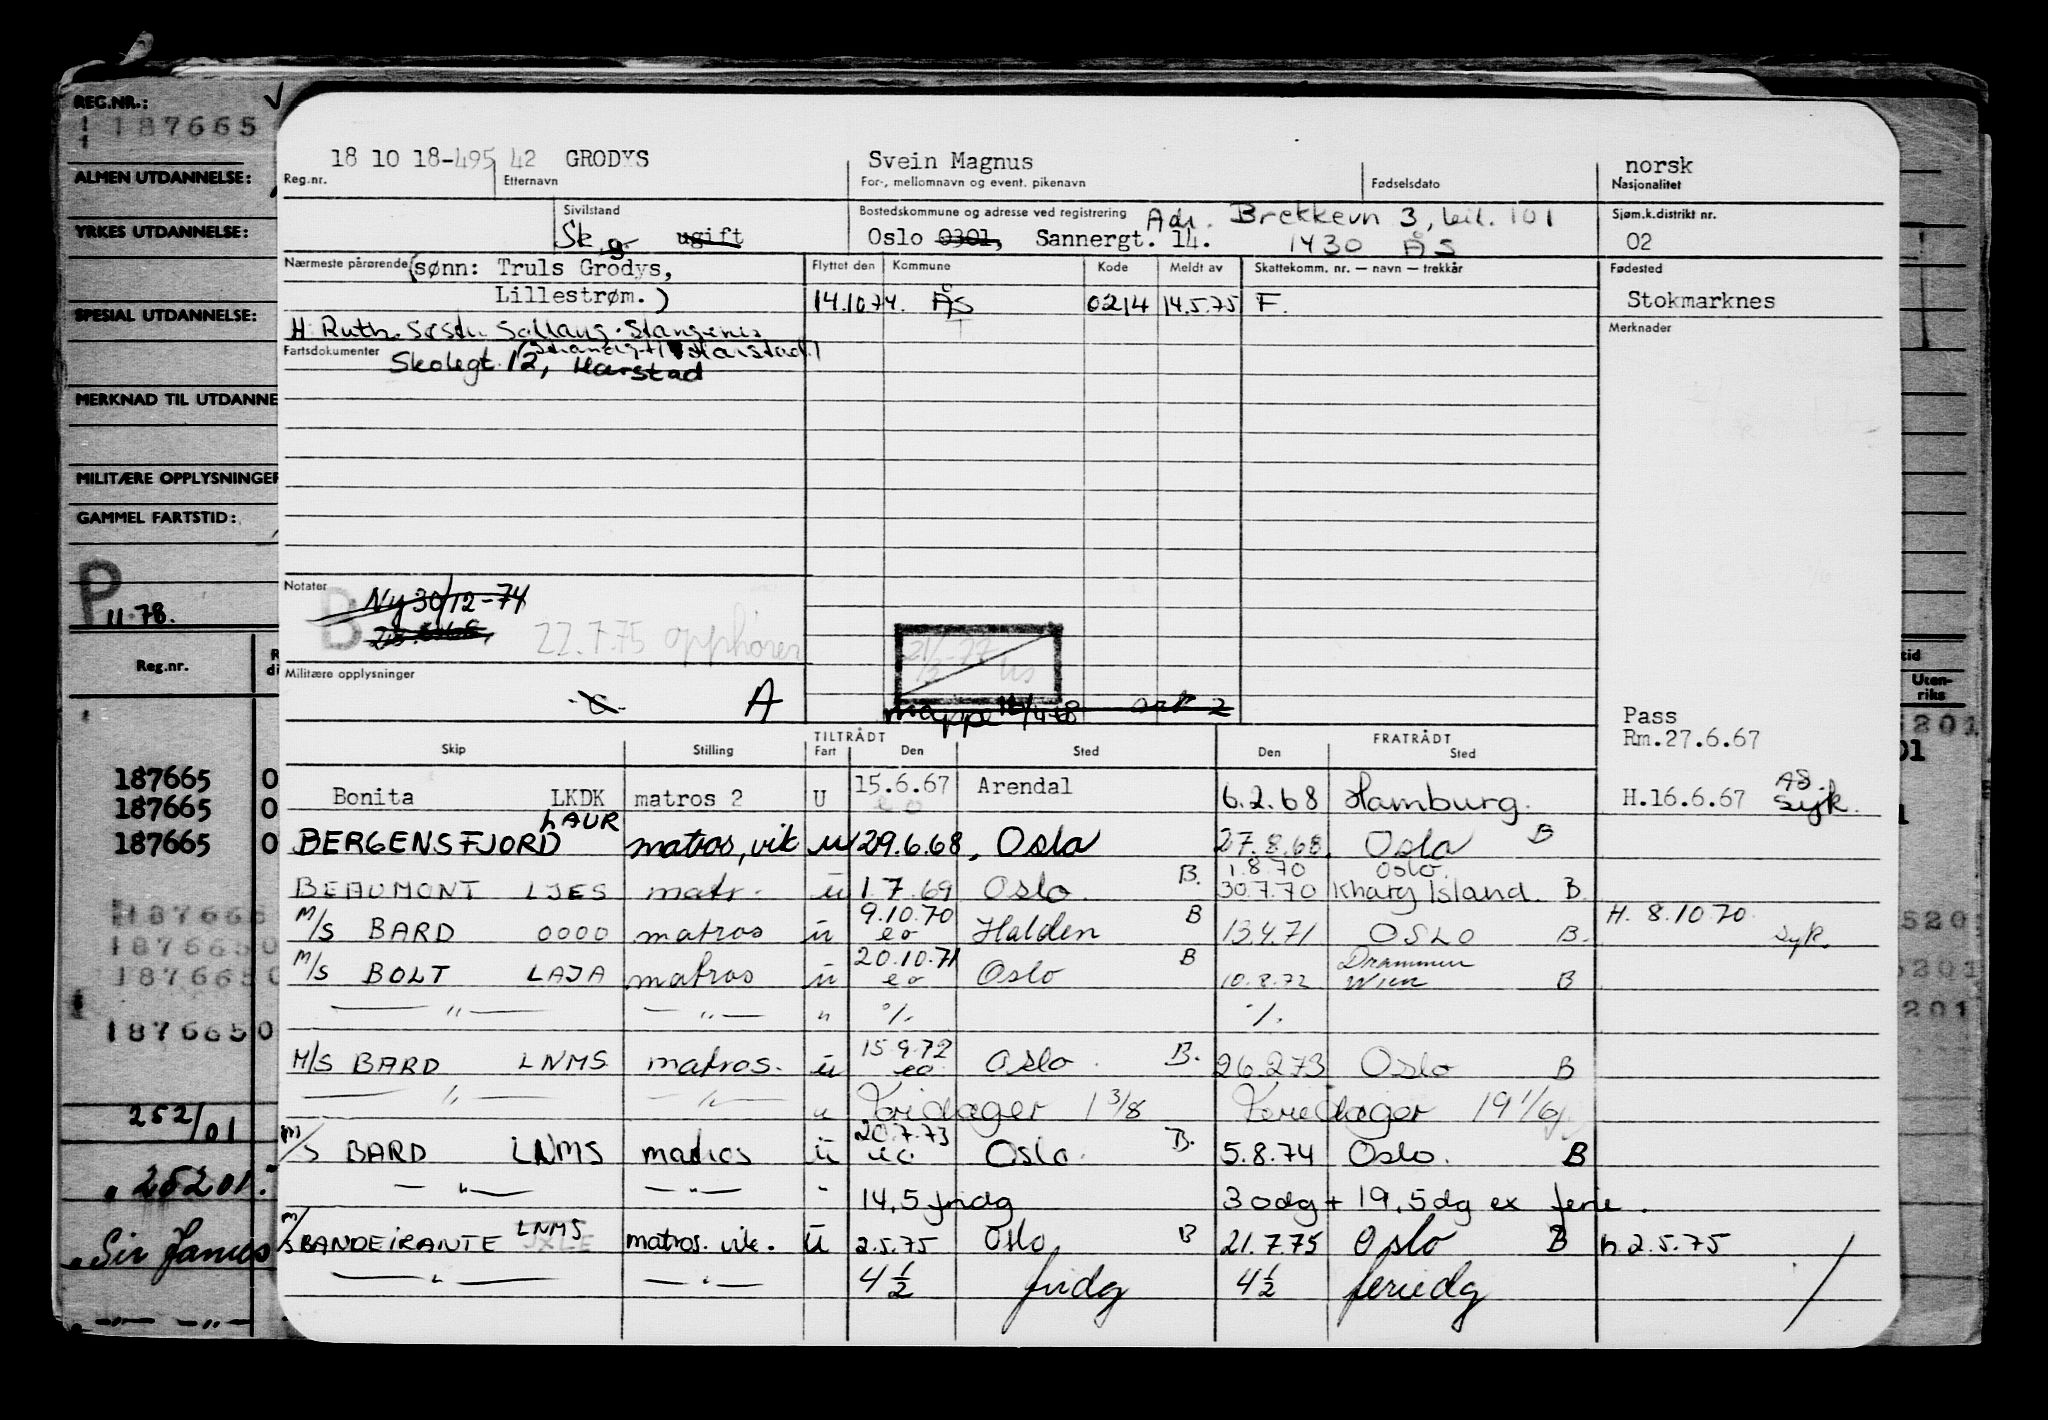 REG.NR.: 187665
ALMEN UTDANNELSE:
YRKES UTDANNELSE:
SPESIAL UTDANNELSE:
MERKNAD TIL UTDANNE
MILITÆRE OPPLYSNINGER
GAMMEL FARTSTID:
P
11.78.
Reg.nr.
187665 0
187665 0
187665 0
187665
1876650
1876650
1876650
252/01
25201.
Sir James
18 10 18-495 42 GRODYS Svein Magnus norsk
Reg.nr. Etternavn For-, mellomnavn og event. pikenavn Fødselsdato Nasjonalitet
Sivilstand Bostedskommune og adresse ved registrering Adr. Brekkevn 3, leil. 101 Sjøm.k.distrikt nr.
Sk. g. ugift Oslo 0301, Sannergt. 14. 1430 ÅS 02
Nærmeste pårørende (sønn: Truls Grodys, Flyttet den Kommune Kode Meldt av Skattekomm. nr. — navn — trekkår Fødested
Lillestrøm.) 14.10.74. ÅS 0214 14.5.75 F. Stokmarknes
H. Ruth Merknader
Fartsdokumenter Skolegt. 12, Harstad
Notater
B Ny 30/12-74
22.7.75 opphører
Militære opplysninger
A
mappe
Pass
Rm.27.6.67
Skip Stilling TILTRÅDT Fart Den Sted FRATRÅDT Den Sted
Bonita LKDK matros 2 U 15.6.67 eo Arendal 6.2.68 Hamburg. H.16.6.67 AS. Syk.
BERGENSFJORD LAUR matros, vik u 29.6.68, Oslo 27.8.68. Oslo B
1.8.70 Oslo.
BEAUMONT LJES matr. u 1.7.69 Oslo B. 30.7.70 Kharg Island. B.
M/S BARD 0000 matros u 9.10.70 eo Halden B 13.4.71 OSLO B. H. 8.10.70. syk.
M/S BOLT LAJA matros u 20.10.71 eo Oslo B 10.8.72 Drammen Wien B
— " — — " — " %. %.
M/S BARD LNMS matros. u 15.9.72 eo Oslo. B. 26.2.73 Oslo B
— " — — " — u Feriedager 1 3/8 Feriedager 19 1/6
M/S BARD LNMS matros u 20.7.73 eo Oslo. B. 5.8.74 Oslo. B
— " — — " — " 14,5 fridg 30dg + 19,5dg ex ferie.
M/S BANDEIRANTE LNMS matros. vik. u 2.5.75 Oslo B 21.7.75 Oslo B h 2.5.75
— " — — " — 4 1/2 fridg 4 1/2 feriedg
tid
Uten-
riks
5201
01
1
5201
201